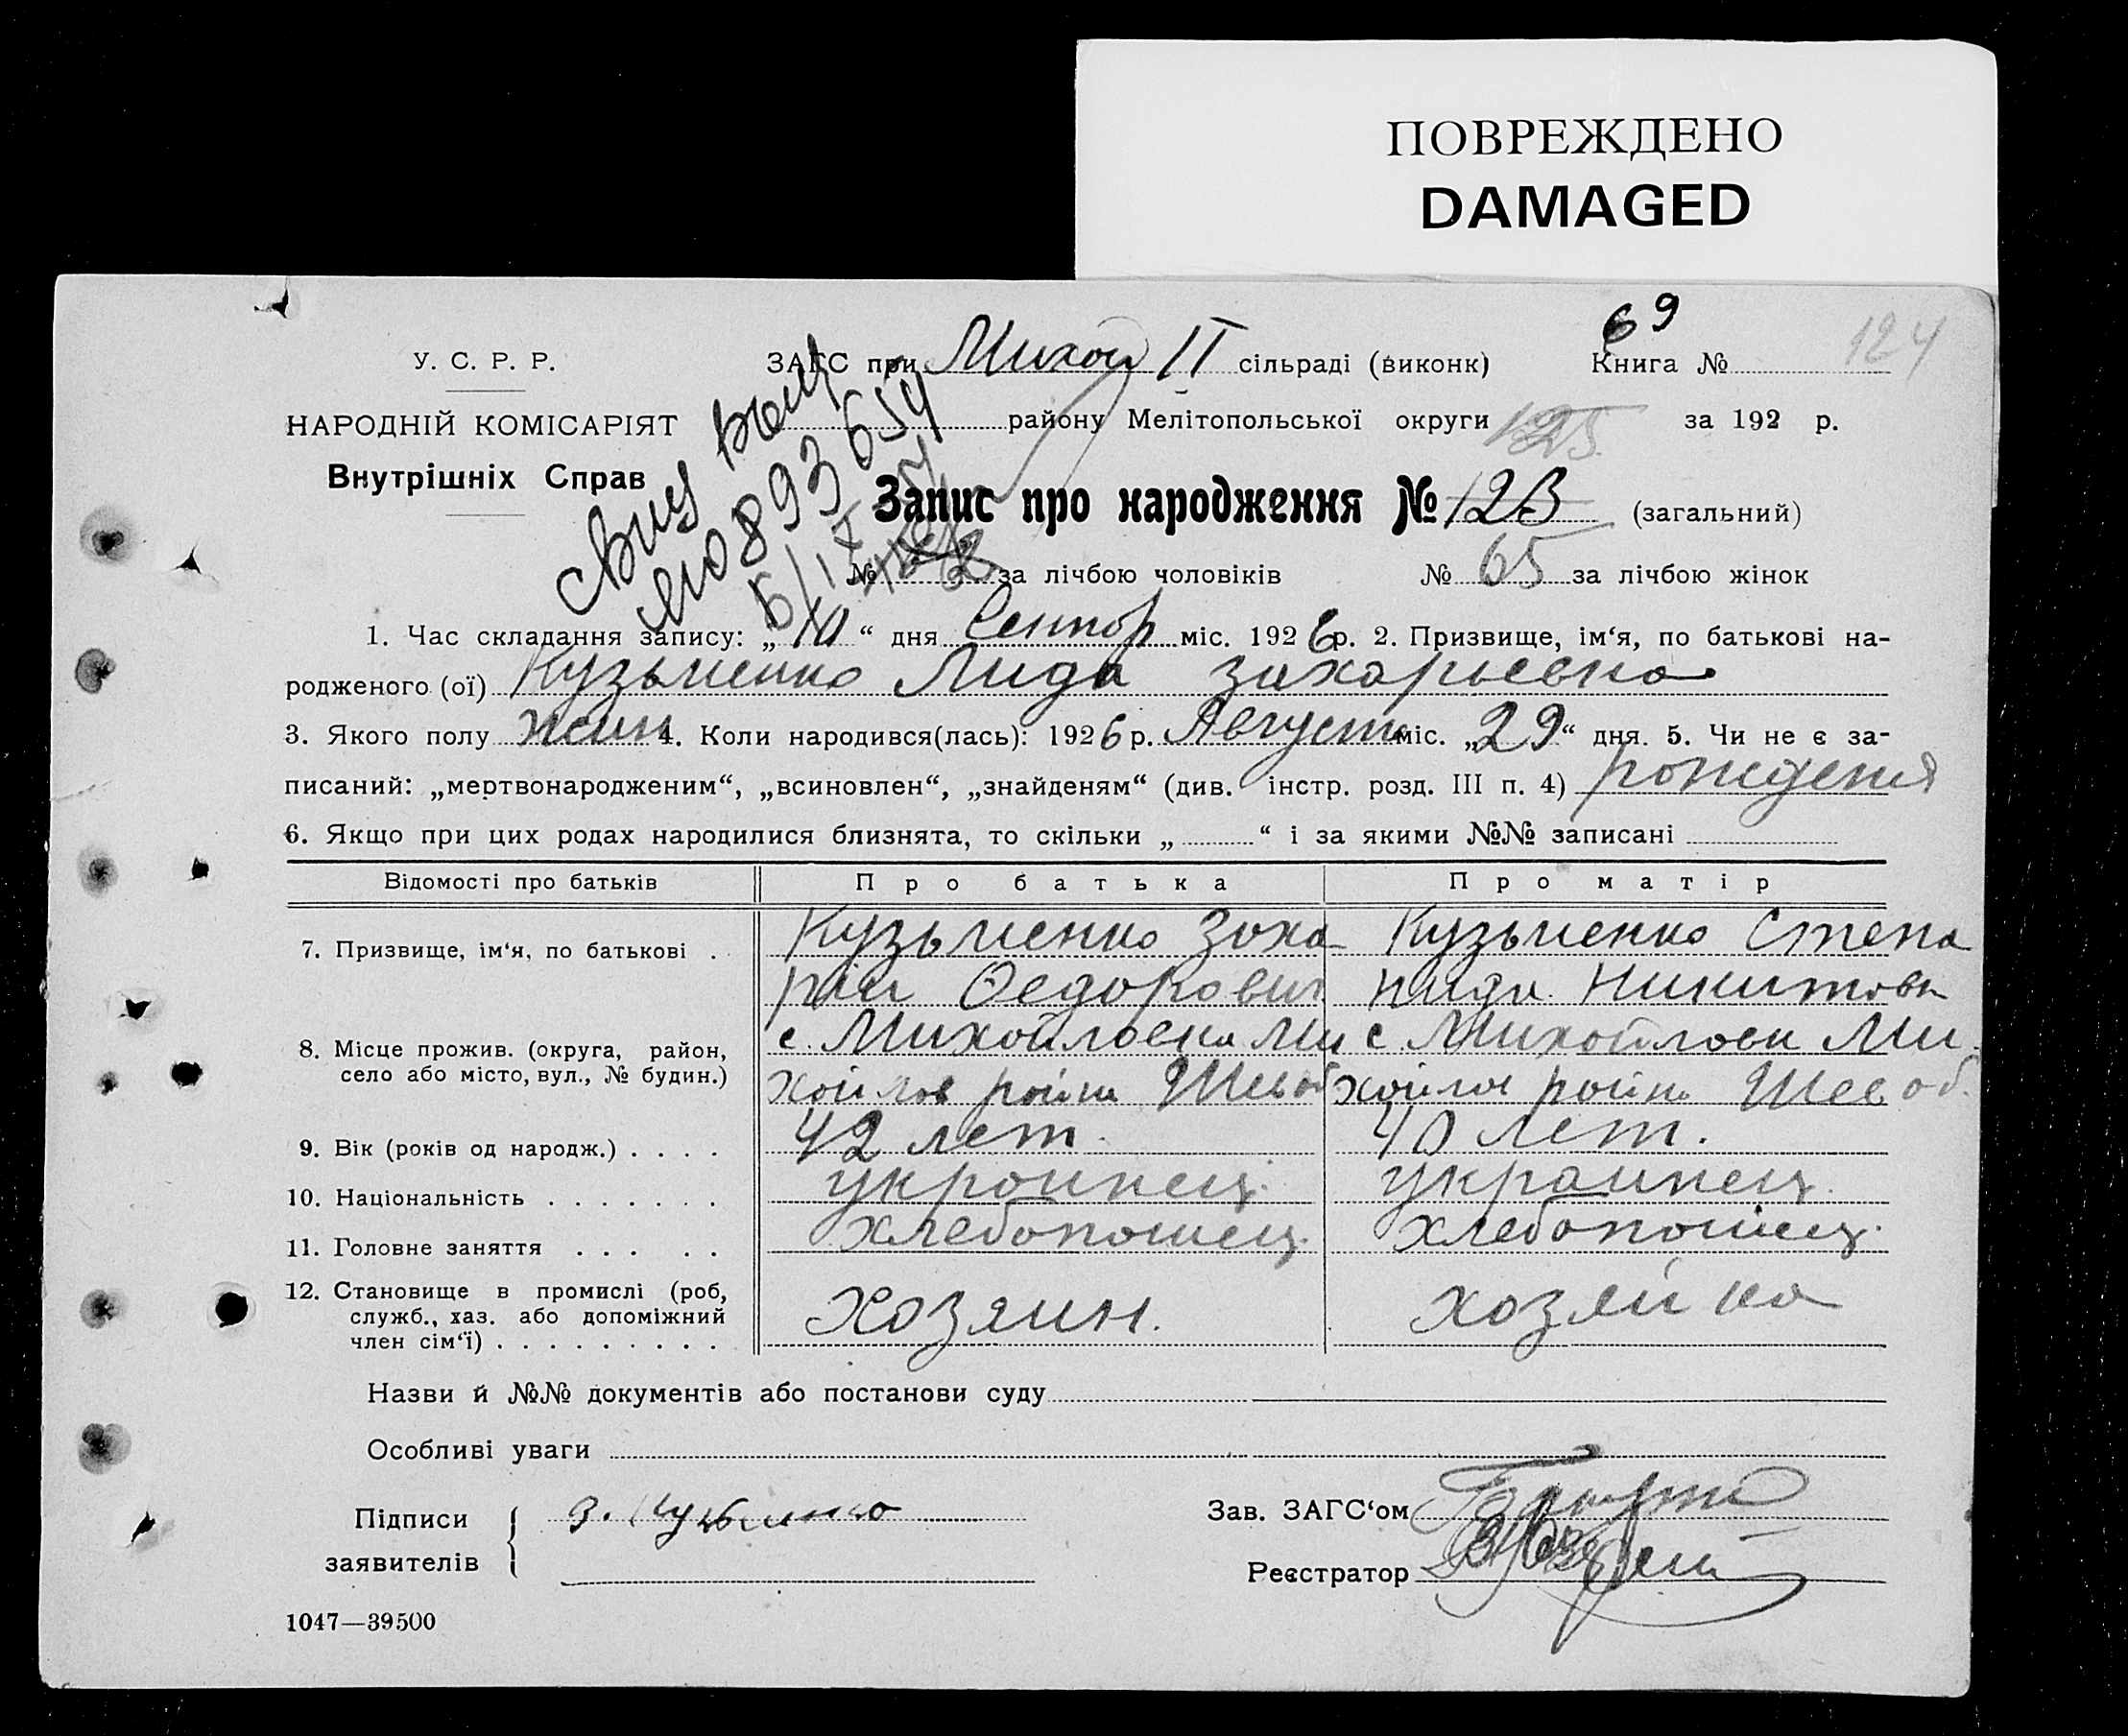 ПОВРЕЖДЕНО
DAMAGED
69
124
У. С. Р. Р.
ЗАГС при Михай II сільраді (виконк) Книга №
НАРОДНІЙ КОМІСАРІЯТ
району Мелітопольської округи 125 за 192 р.
Внутрішніх Справ
Свид выд
Запис про народження № 123 (загальний)
№ за лічбою чоловіків № 65 за лічбою жінок
1. Час складання запису: „10“ дня Сентяб міс. 1926 р. 2. Призвище, ім‘я, по батькові на-
родженого (ої) Кузьменко Лида Захарьевна
3. Якого полу жин 4. Коли народився(лась): 1926 р. Август міс. „29“ дня. 5. Чи не є за-
писаний: „мертвонародженим“, „всиновлен“, „знайденям“ (див. інстр. розд. III п. 4) рождения
6. Якщо при цих родах народилися близнята, то скільки „ “ і за якими №№ записані
Відомості про батьків Про батька Про матір
7. Призвище, ім‘я, по батькові . Кузьменко Заха Кузьменко Степа
рии Федорович нида Никитовн
8. Місце прожив. (округа, район, с. Михайловка Ми с. Михайловки Ми
село або місто, вул., № будин.) хайлов района хайлов района
9. Вік (років од народж.) . . . . 42 лет. 40 лет.
10. Національність . . . . . . . украинец. украинец.
11. Головне заняття . . . . . хлебопашец. хлебопашец.
12. Становище в промислі (роб, хозяин. хозяйка
служб., хаз. або допоміжний
член сім‘ї) . . . . . . . . .
Назви й №№ документів або постанови суду
Особливі уваги
Підписи З. Кузьменко Зав. ЗАГС‘ом
заявителів Реєстратор
1047—39500